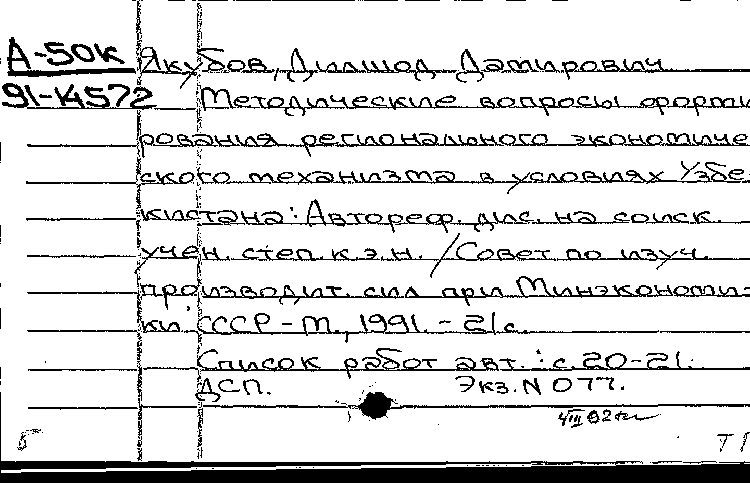 А-50к Якубов, Дилшод Дамирович
91-14572 Методические вопросы форми
рования регионального экономиче
ского механизма в условиях Узбе
кистана: Автореф. дис. на соиск.
учен. степ. к.э.н. / Совет по изуч.
производит. сил при Минэкономи-
ки СССР - М., 1991. - 21с.
Список работ авт.: с. 20-21.
ДСП. Экз. N 077.
Б